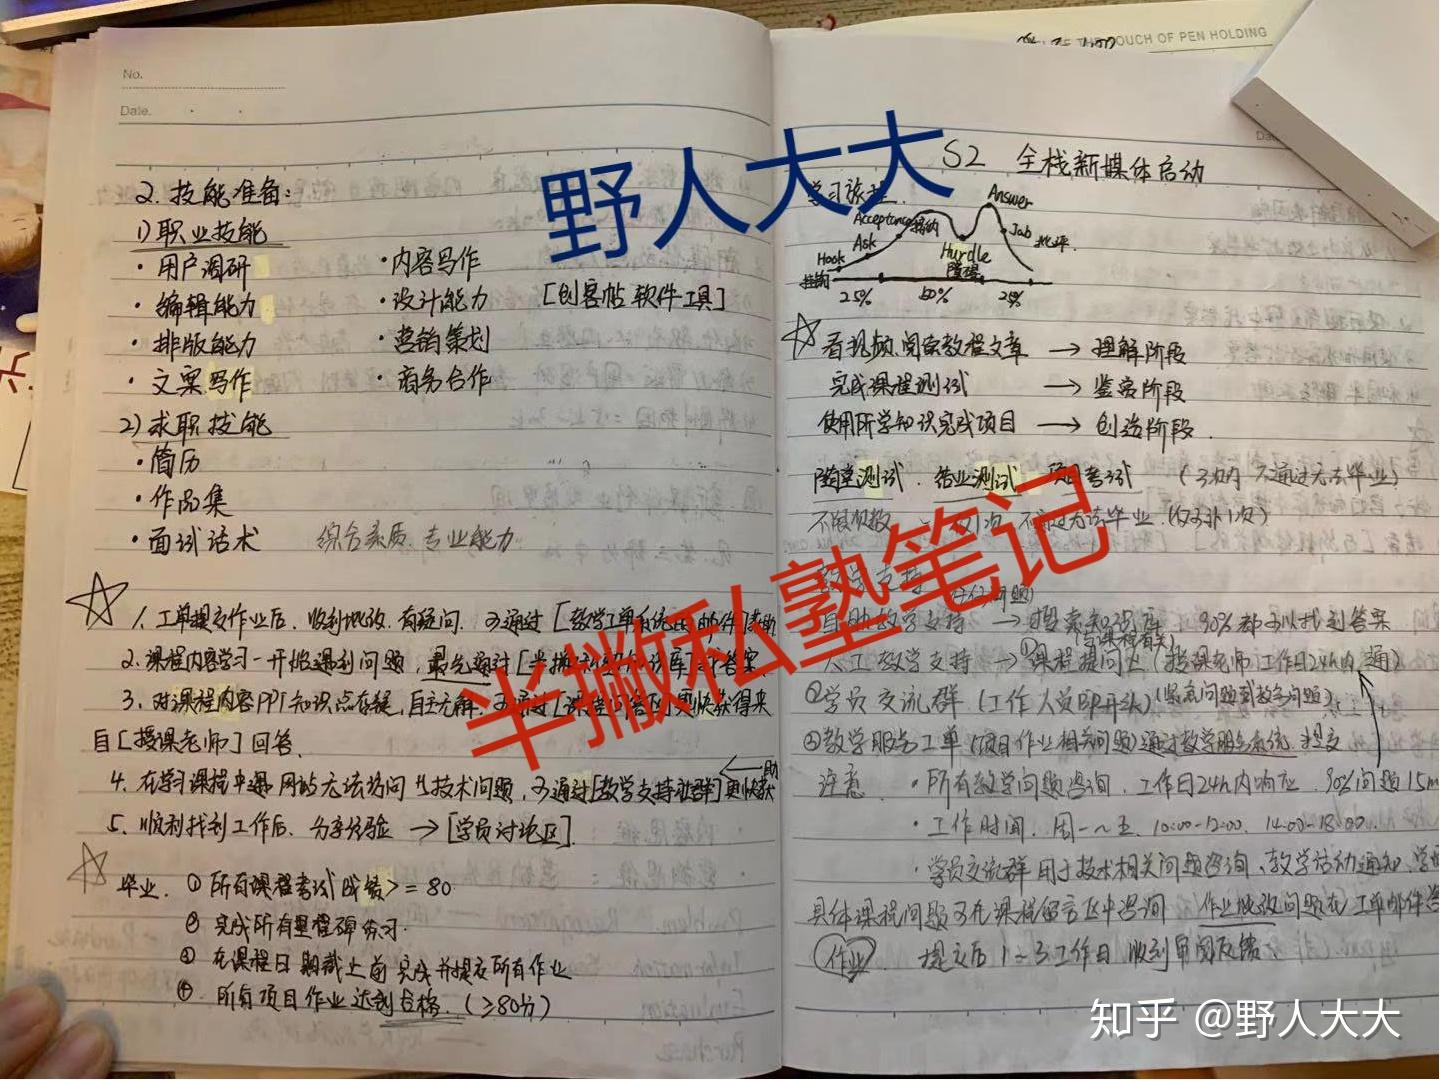 No.
Date.
2. 技能准备:
1) 职业技能
· 用户调研 · 内容写作
· 编辑能力 · 设计能力 [创客帖 软件工具]
· 排版能力 · 营销策划
· 文案写作 · 商务合作
2) 求职技能
· 简历
· 作品集
· 面试话术 综合素质 专业能力
1. 工单提交作业后, 收到批改, 有疑问, 可通过
2. 课程内容学习一开始遇到问题, 最先通过
3. 对课程内容PPT知识点存疑, 自主无解, 可通过 更快获得来
自[授课老师]回答.
4. 在学习课程中遇网站无法访问 技术问题, 可通过[教学支持社群]更快获 助
5. 顺利找到工作后, 分享经验 → [学员讨论区].
毕业. ① 所有课程考试成绩>=80
② 完成所有里程碑练习.
③ 在课程日期截止前完成并提交所有作业
④ 所有项目作业达到合格. (≥80分)
THE TOUCH OF PEN HOLDING
S2 全栈新媒体启动
学习旅程.
Answer
Acceptance 接纳
Ask
Jab 批评.
Hook
挂钩
Hurdle
障碍
25% 50% 25%
看视频, 阅读教程文章 → 理解阶段
完成课程测试 → 鉴实阶段
使用所学知识完成项目 → 创造阶段.
随堂测试. 结业测试 项目考试 (3次内 不通过无法毕业)
不限次数 仅1次 不通过无法毕业. (仅可补1次)
支持
自助教学支持 → 搜索知识库 90%都可以找到答案
(与课程有关)
人工教学支持 → ①课程提问区 (授课老师工作日24h内 通)
②学员交流群 (工作人员即开头) (紧急问题到教务问题)
③教学服务工单 (项目作业相关问题) 通过教学服务系统 提交
注意 · 所有教学问题咨询, 工作日24h内响应, 90%问题15m
· 工作时间. 周一~五. 10:00-12:00. 14:00-18:00.
· 学员交流群用于技术相关问题咨询、教学活动通知、学
具体课程问题可在课程留言区中咨询 作业批改问题在工单邮件
作业 提交后1~3工作日 收到审阅反馈.
野人大大
半撇私塾笔记
知乎 @野人大大